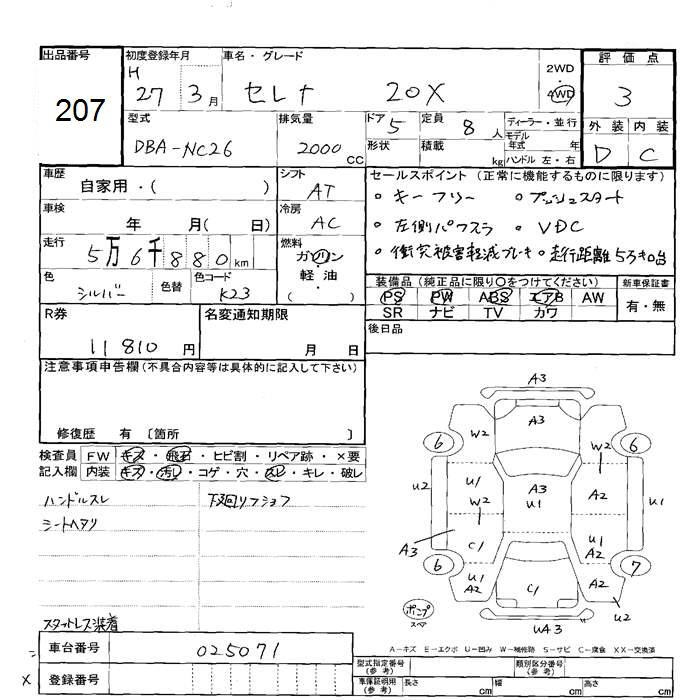 出品番号
207
初度登録年月
H
27 3月
車名・グレード
セレナ 20X
2WD
・
4WD
評価点
3
外装 内装
D C
型式
DBA-NC26
排気量
2000 CC
ドア 5
形状
定員 8 人
積載 kg
ディーラー・並行
モデル
年式 年
ハンドル 左・右
車歴
自家用・( )
シフト
AT
車検
年 月( 日)
冷房
AC
走行
5万6千880km
燃料
ガソリン
・
軽油
( )
色
シルバー
色替
色コード
K23
セールスポイント (正常に機能するものに限ります)
・キーフリー ・プッシュスタート
・左側パワスラ ・VDC
・衝突被害軽減ブレーキ ・走行距離5万キロ台
装備品 (純正品に限り○をつけてください)
PS PW ABS エアB AW
SR ナビ TV カワ
新車保証書
有・無
後日品
R券
11810 円
名変通知期限
月 日
注意事項申告欄 (不具合内容等は具体的に記入して下さい)
修復歴 有 〔箇所 〕
検査員
記入欄
FW キズ・飛石・ヒビ割・リペア跡・×要
内装 キズ・汚れ・コゲ・穴・スレ・キレ・破レ
ハンドルスレ 下廻リフショク
シートヘタリ
スタットレス装着
A3
A3
W2
W2
6
6
U2
U1
W2
A3
U1
A2
U1
A3
C1
U1
A2
6
7
U1
A2
C1
A2
U2
UA3
ポンプ
スペア
A-キズ E-エクボ U-凹み W-補修跡 S-サビ C-腐食 XX-交換済
車台番号
025071
× 登録番号
型式指定番号
(参考)
類別区分番号
(参考)
車庫証明用
(参考)
長さ cm
幅 cm
高さ cm